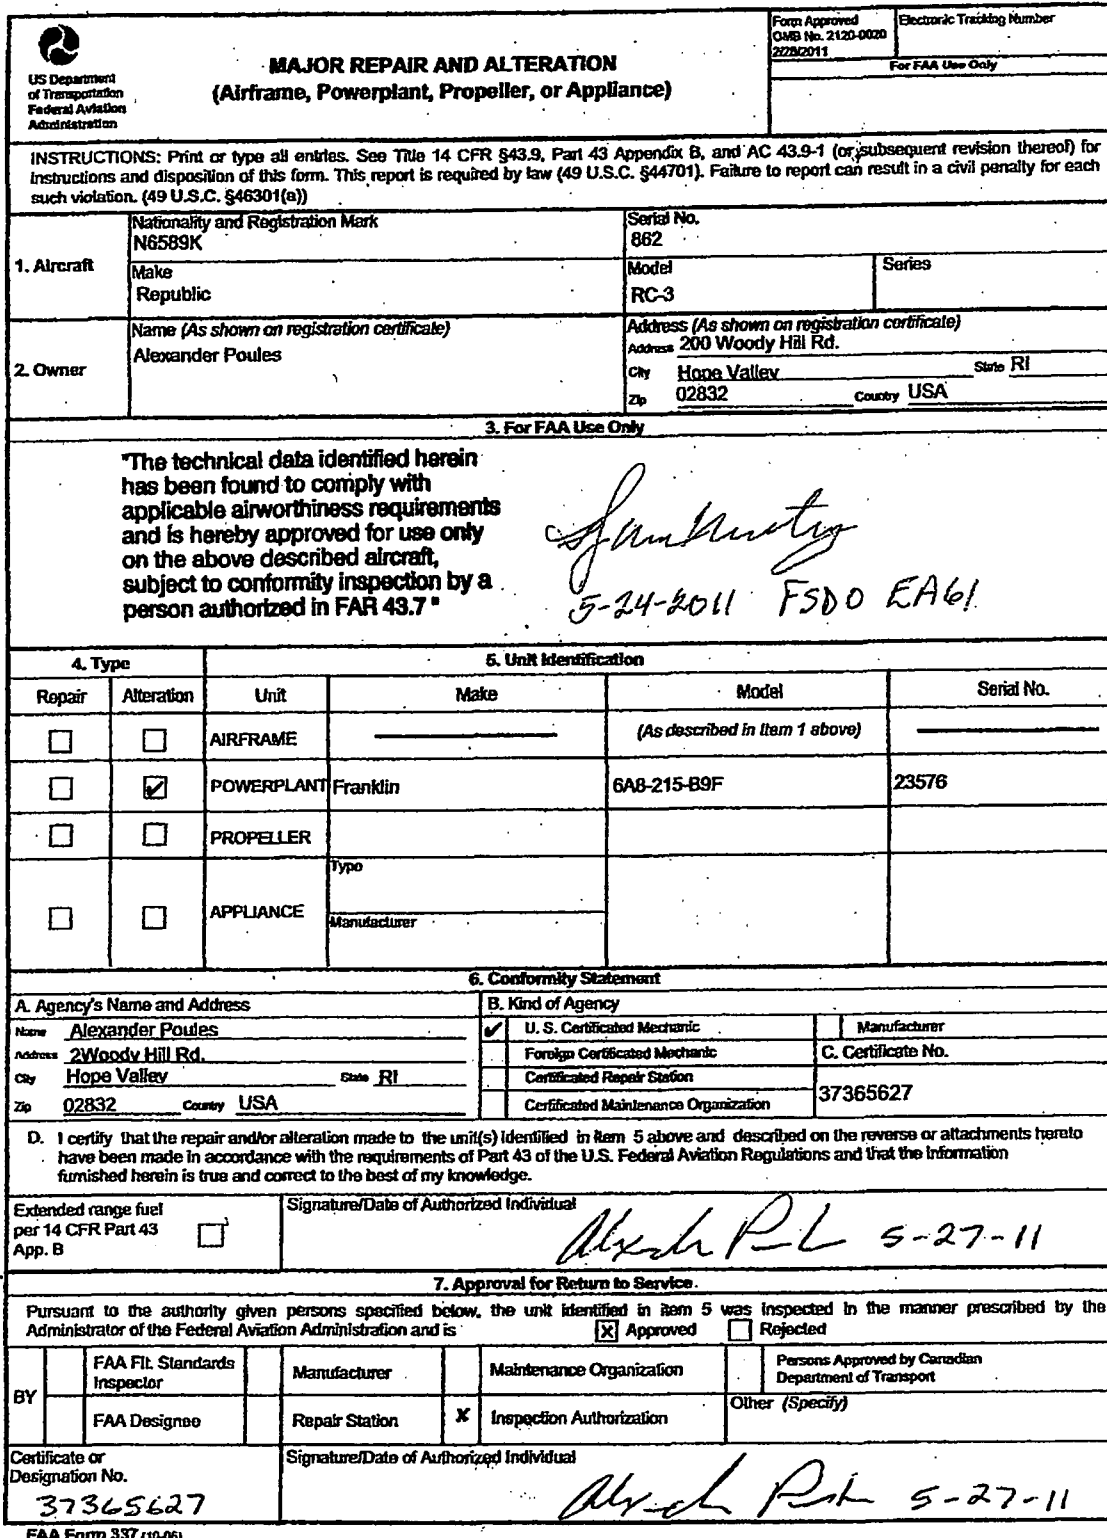 Form Approved
OMB No. 2120-0020
2/28/2011
Electronic Tracking Number
For FAA Use Only
US Department
of Transportation
Federal Aviation
Administration
MAJOR REPAIR AND ALTERATION
(Airframe, Powerplant, Propeller, or Appliance)
INSTRUCTIONS: Print or type all entries. See Title 14 CFR §43.9, Part 43 Appendix B, and AC 43.9-1 (or subsequent revision thereof) for
instructions and disposition of this form. This report is required by law (49 U.S.C. §44701). Failure to report can result in a civil penalty for each
such violation. (49 U.S.C. §46301(a))
1. Aircraft
Nationality and Registration Mark
N6589K
Serial No.
862
Make
Republic
Model
RC-3
Series
2. Owner
Name (As shown on registration certificate)
Alexander Poules
Address (As shown on registration certificate)
Address 200 Woody Hill Rd.
City Hope Valley State RI
Zip 02832 Country USA
3. For FAA Use Only
"The technical data identified herein
has been found to comply with
applicable airworthiness requirements
and is hereby approved for use only
on the above described aircraft,
subject to conformity inspection by a
person authorized in FAR 43.7 "
5-24-2011 FSDO EA61
4. Type
5. Unit Identification
Repair Alteration Unit Make Model Serial No.
AIRFRAME (As described in Item 1 above)
POWERPLANT Franklin 6A8-215-B9F 23576
PROPELLER
APPLIANCE
Type
Manufacturer
6. Conformity Statement
A. Agency's Name and Address
B. Kind of Agency
Name Alexander Poules
Address 2Woody Hill Rd.
City Hope Valley State RI
Zip 02832 Country USA
U. S. Certificated Mechanic
Manufacturer
Foreign Certificated Mechanic
C. Certificate No.
Certificated Repair Station
37365627
Certificated Maintenance Organization
D. I certify that the repair and/or alteration made to the unit(s) identified in item 5 above and described on the reverse or attachments hereto
have been made in accordance with the requirements of Part 43 of the U.S. Federal Aviation Regulations and that the information
furnished herein is true and correct to the best of my knowledge.
Extended range fuel
per 14 CFR Part 43
App. B
Signature/Date of Authorized Individual
5-27-11
7. Approval for Return to Service.
Pursuant to the authority given persons specified below, the unit identified in item 5 was inspected in the manner prescribed by the
Administrator of the Federal Aviation Administration and is X Approved Rejected
BY
FAA Flt. Standards
Inspector
Manufacturer
Maintenance Organization
Persons Approved by Canadian
Department of Transport
FAA Designee
Repair Station
X Inspection Authorization
Other (Specify)
Certificate or
Designation No.
37365627
Signature/Date of Authorized Individual
5-27-11
FAA Form 337 (10-06)